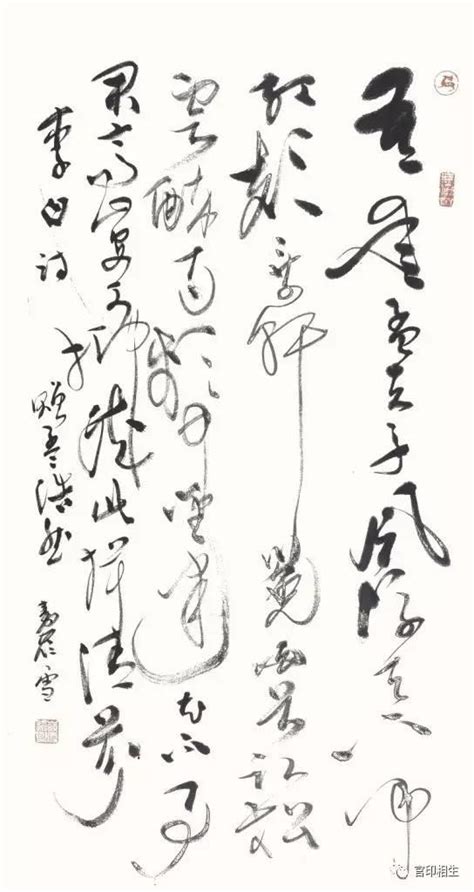 吾爱孟夫子风流天下闻
红颜弃轩冕白首卧松
云醉月频中圣迷花不事
君高山安可仰徒此揖清芬
李白诗赠孟浩然 雪
官印相生